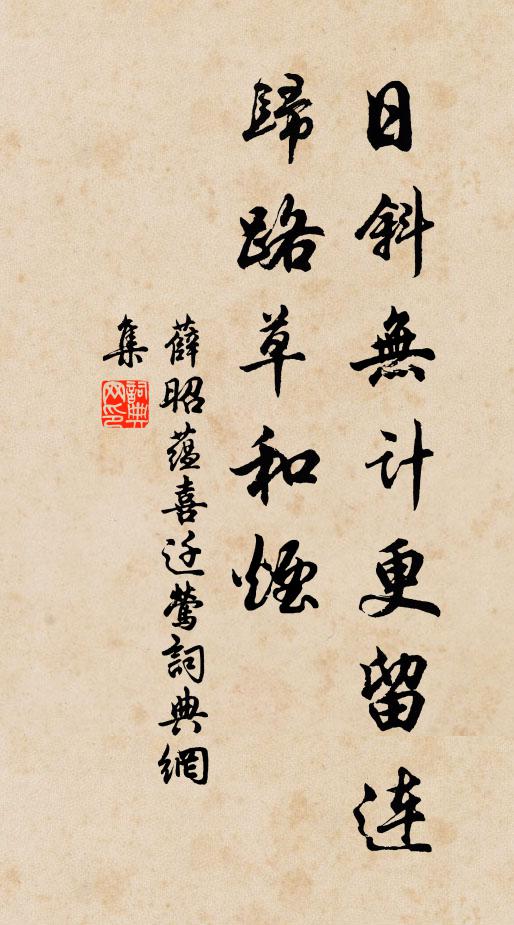 日斜無計更留連
歸路草和煙
薛昭蕴喜迁鶯詞典網
集
詞典網印